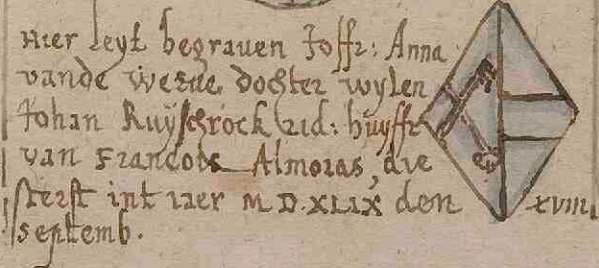 Hier leyt begraven Joffr: Anna
vande Werve dochter wylen
Johan Ruÿschrock rid: huÿffr
van Francois Almoras, die
sterft int iaer M D.XLIX den xviii
septemb.